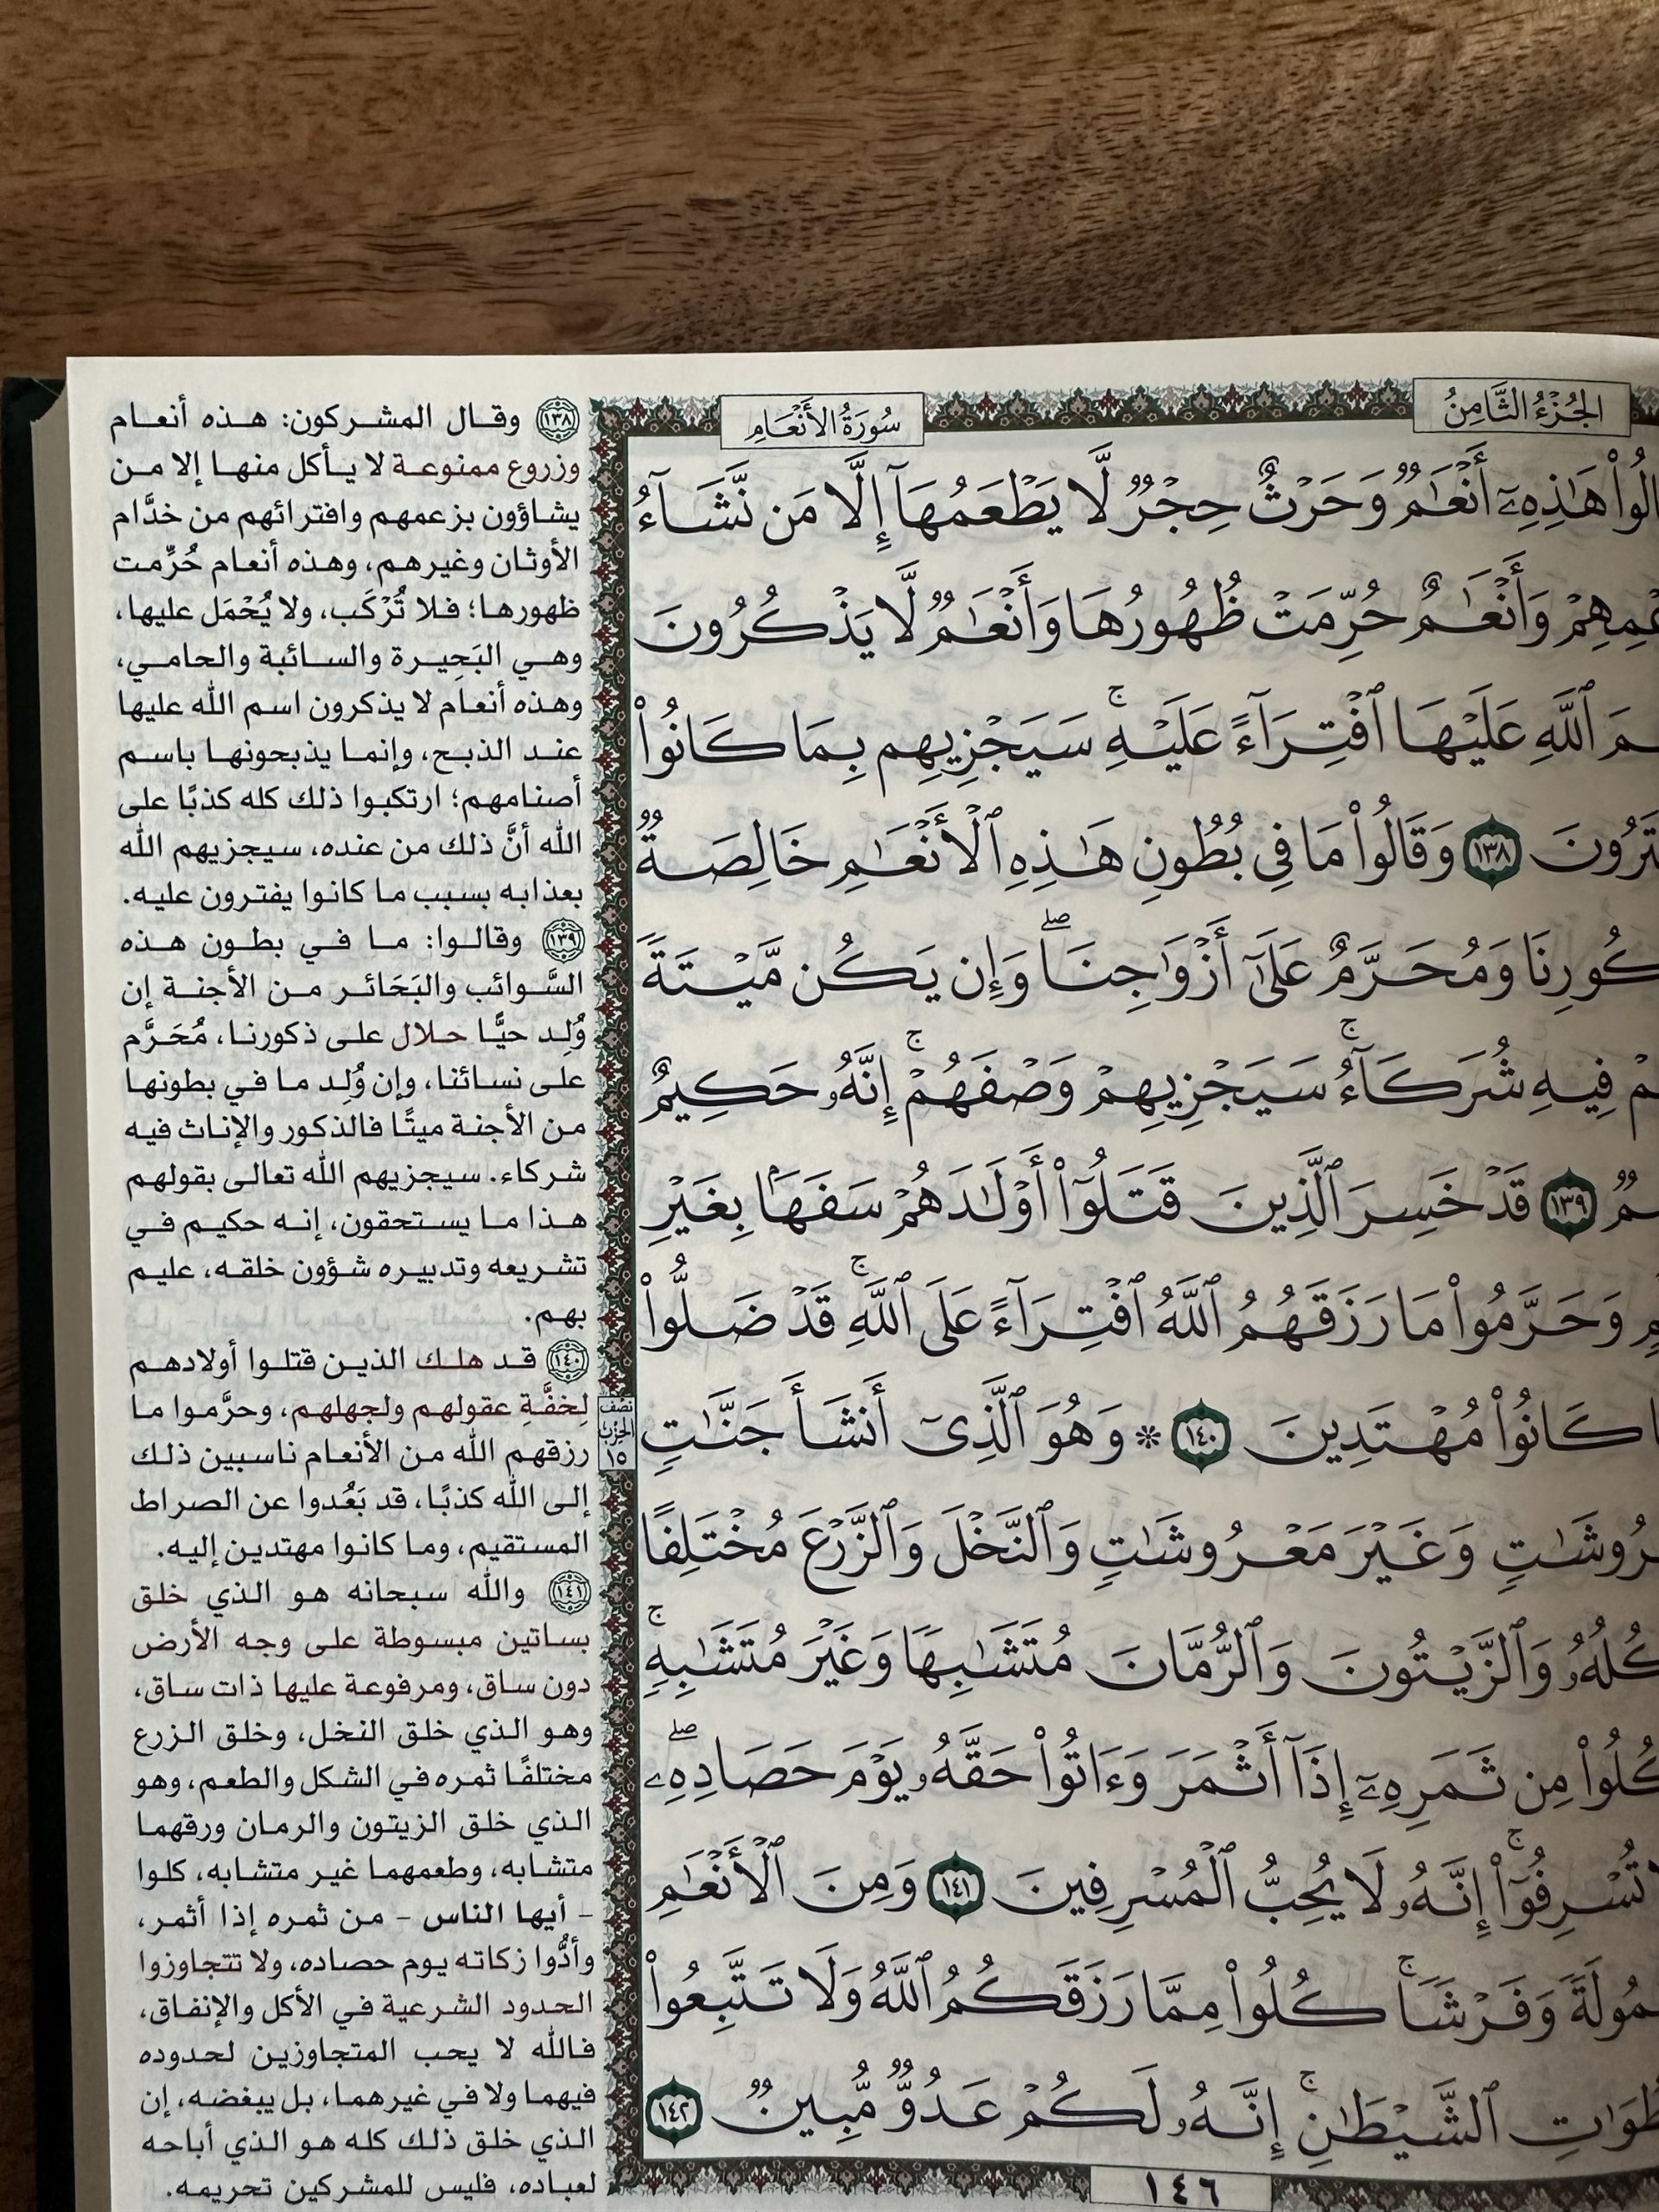 الجُزْءُ الثَّامِنُ
سُورَةُ الأَنْعَامِ
هَٰذِهِۦٓ أَنْعَٰمٞ وَحَرْثٌ حِجْرٞ لَّا يَطْعَمُهَآ إِلَّا مَن نَّشَآءُ
وَأَنْعَٰمٌ حُرِّمَتْ ظُهُورُهَا وَأَنْعَٰمٞ لَّا يَذْكُرُونَ
ٱللَّهِ عَلَيْهَا ٱفْتِرَآءً عَلَيْهِۚ سَيَجْزِيهِم بِمَا كَانُوا۟
١٣٨ وَقَالُوا۟ مَا فِى بُطُونِ هَٰذِهِ ٱلْأَنْعَٰمِ خَالِصَةٞ
وَمُحَرَّمٌ عَلَىٰٓ أَزْوَٰجِنَاۖ وَإِن يَكُن مَّيْتَةٗ
فِيهِ شُرَكَآءُۚ سَيَجْزِيهِمْ وَصْفَهُمْۚ إِنَّهُۥ حَكِيمٌ
١٣٩ قَدْ خَسِرَ ٱلَّذِينَ قَتَلُوٓا۟ أَوْلَٰدَهُمْ سَفَهَۢا بِغَيْرِ
وَحَرَّمُوا۟ مَا رَزَقَهُمُ ٱللَّهُ ٱفْتِرَآءً عَلَى ٱللَّهِۚ قَدْ ضَلُّوا۟
كَانُوا۟ مُهْتَدِينَ ١٤٠ ۞ وَهُوَ ٱلَّذِىٓ أَنشَأَ جَنَّٰتٖ
وَغَيْرَ مَعْرُوشَٰتٖ وَٱلنَّخْلَ وَٱلزَّرْعَ مُخْتَلِفًا
وَٱلزَّيْتُونَ وَٱلرُّمَّانَ مُتَشَٰبِهٗا وَغَيْرَ مُتَشَٰبِهٖۚ
كُلُوا۟ مِن ثَمَرِهِۦٓ إِذَآ أَثْمَرَ وَءَاتُوا۟ حَقَّهُۥ يَوْمَ حَصَادِهِۦۖ
تُسْرِفُوٓا۟ۚ إِنَّهُۥ لَا يُحِبُّ ٱلْمُسْرِفِينَ ١٤١ وَمِنَ ٱلْأَنْعَٰمِ
وَفَرْشٗاۚ كُلُوا۟ مِمَّا رَزَقَكُمُ ٱللَّهُ وَلَا تَتَّبِعُوا۟
ٱلشَّيْطَٰنِۚ إِنَّهُۥ لَكُمْ عَدُوّٞ مُّبِينٞ ١٤٢
١٤٦
نصف
الحزب
١٥
١٣٨ وقال المشركون: هذه أنعام
وزروع ممنوعة لا يأكل منها إلا من
يشاؤون بزعمهم وافترائهم من خدَّام
الأوثان وغيرهم، وهذه أنعام حُرِّمت
ظهورها؛ فلا تُرْكَب، ولا يُحْمَل عليها،
وهي البَحِيرة والسائبة والحامي،
وهذه أنعام لا يذكرون اسم الله عليها
عند الذبح، وإنما يذبحونها باسم
أصنامهم؛ ارتكبوا ذلك كله كذبًا على
الله أنَّ ذلك من عنده، سيجزيهم الله
بعذابه بسبب ما كانوا يفترون عليه.
١٣٩ وقالوا: ما في بطون هذه
السَّوائب والبَحَائر من الأجنة إن
وُلِد حيًّا حلال على ذكورنا، مُحَرَّم
على نسائنا، وإن وُلِد ما في بطونها
من الأجنة ميتًا فالذكور والإناث فيه
شركاء. سيجزيهم الله تعالى بقولهم
هذا ما يستحقون، إنه حكيم في
تشريعه وتدبيره شؤون خلقه، عليم
بهم.
١٤٠ قد هلك الذين قتلوا أولادهم
لِخفَّةِ عقولهم ولجهلهم، وحرَّموا ما
رزقهم الله من الأنعام ناسبين ذلك
إلى الله كذبًا، قد بَعُدوا عن الصراط
المستقيم، وما كانوا مهتدين إليه.
١٤١ والله سبحانه هو الذي خلق
بساتين مبسوطة على وجه الأرض
دون ساق، ومرفوعة عليها ذات ساق،
وهو الذي خلق النخل، وخلق الزرع
مختلفًا ثمره في الشكل والطعم، وهو
الذي خلق الزيتون والرمان ورقهما
متشابه، وطعمهما غير متشابه، كلوا
- أيها الناس - من ثمره إذا أثمر،
وأدُّوا زكاته يوم حصاده، ولا تتجاوزوا
الحدود الشرعية في الأكل والإنفاق،
فالله لا يحب المتجاوزين لحدوده
فيهما ولا في غيرهما، بل يبغضه، إن
الذي خلق ذلك كله هو الذي أباحه
لعباده، فليس للمشركين تحريمه.